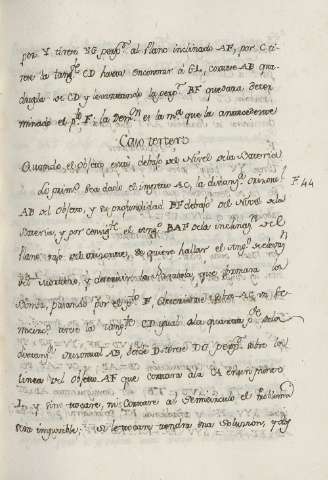 por Y tirese YG perp.r al Plano inclinado AF, por C ti-
rese la tang.te CD hasta encontrar á GL, cortese AB qua-
drupla de CD y levantando la perp.r BF quedara deter
minado el p.to F; la Dem.on es la m.ma que la antecedente
Caso tercero
Quando el objeto está debajo del Nivel de la Bateria
Lo prim.o sea dado el ingreso AC, la distanz.a orizontal F. 44
AB del Objeto, y su profundidad BF debajo del Nivel de la
Bateria, y por consig.te el ang.o BAF de la inclinaz.n del
Plano bajo del orizonte, se quiere hallar el ang.o
del mortero, y descrivir la Parabola, que formara la
Bomba, pasando por el p.to F.
tirese la tang.te CD igual a la quarta p.te de la
distanz.a orizontal AB, desde D tirese DG perp.r sobre la
linea del objeto AF que cortara a la CA en un punto
y, si no tocare, ni Cortare al Semicirculo el Problema
sera imposible; si le tocare, tendra una Solucion, y dos